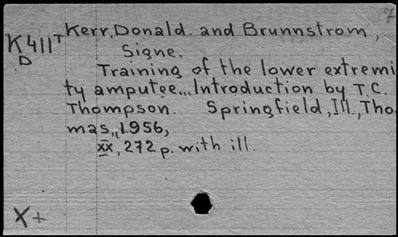 7
K411T Kerr, Donald. and Brunnstrom,
D Signe.
Training of the lower extremi
ty amputee... Introduction by T.C.
Thompson. Springfield, Ill., Tho
mas, 1956,
xx, 272 p. with ill.
X+